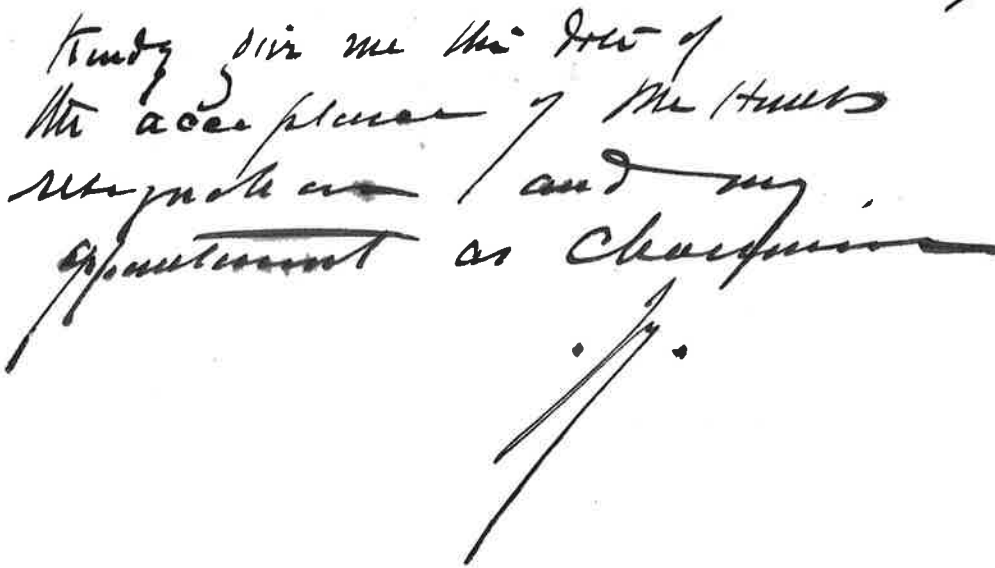 Kindly give me the date of
the acceptance of Mr Hunts
resignation and my
appointment as Chairman